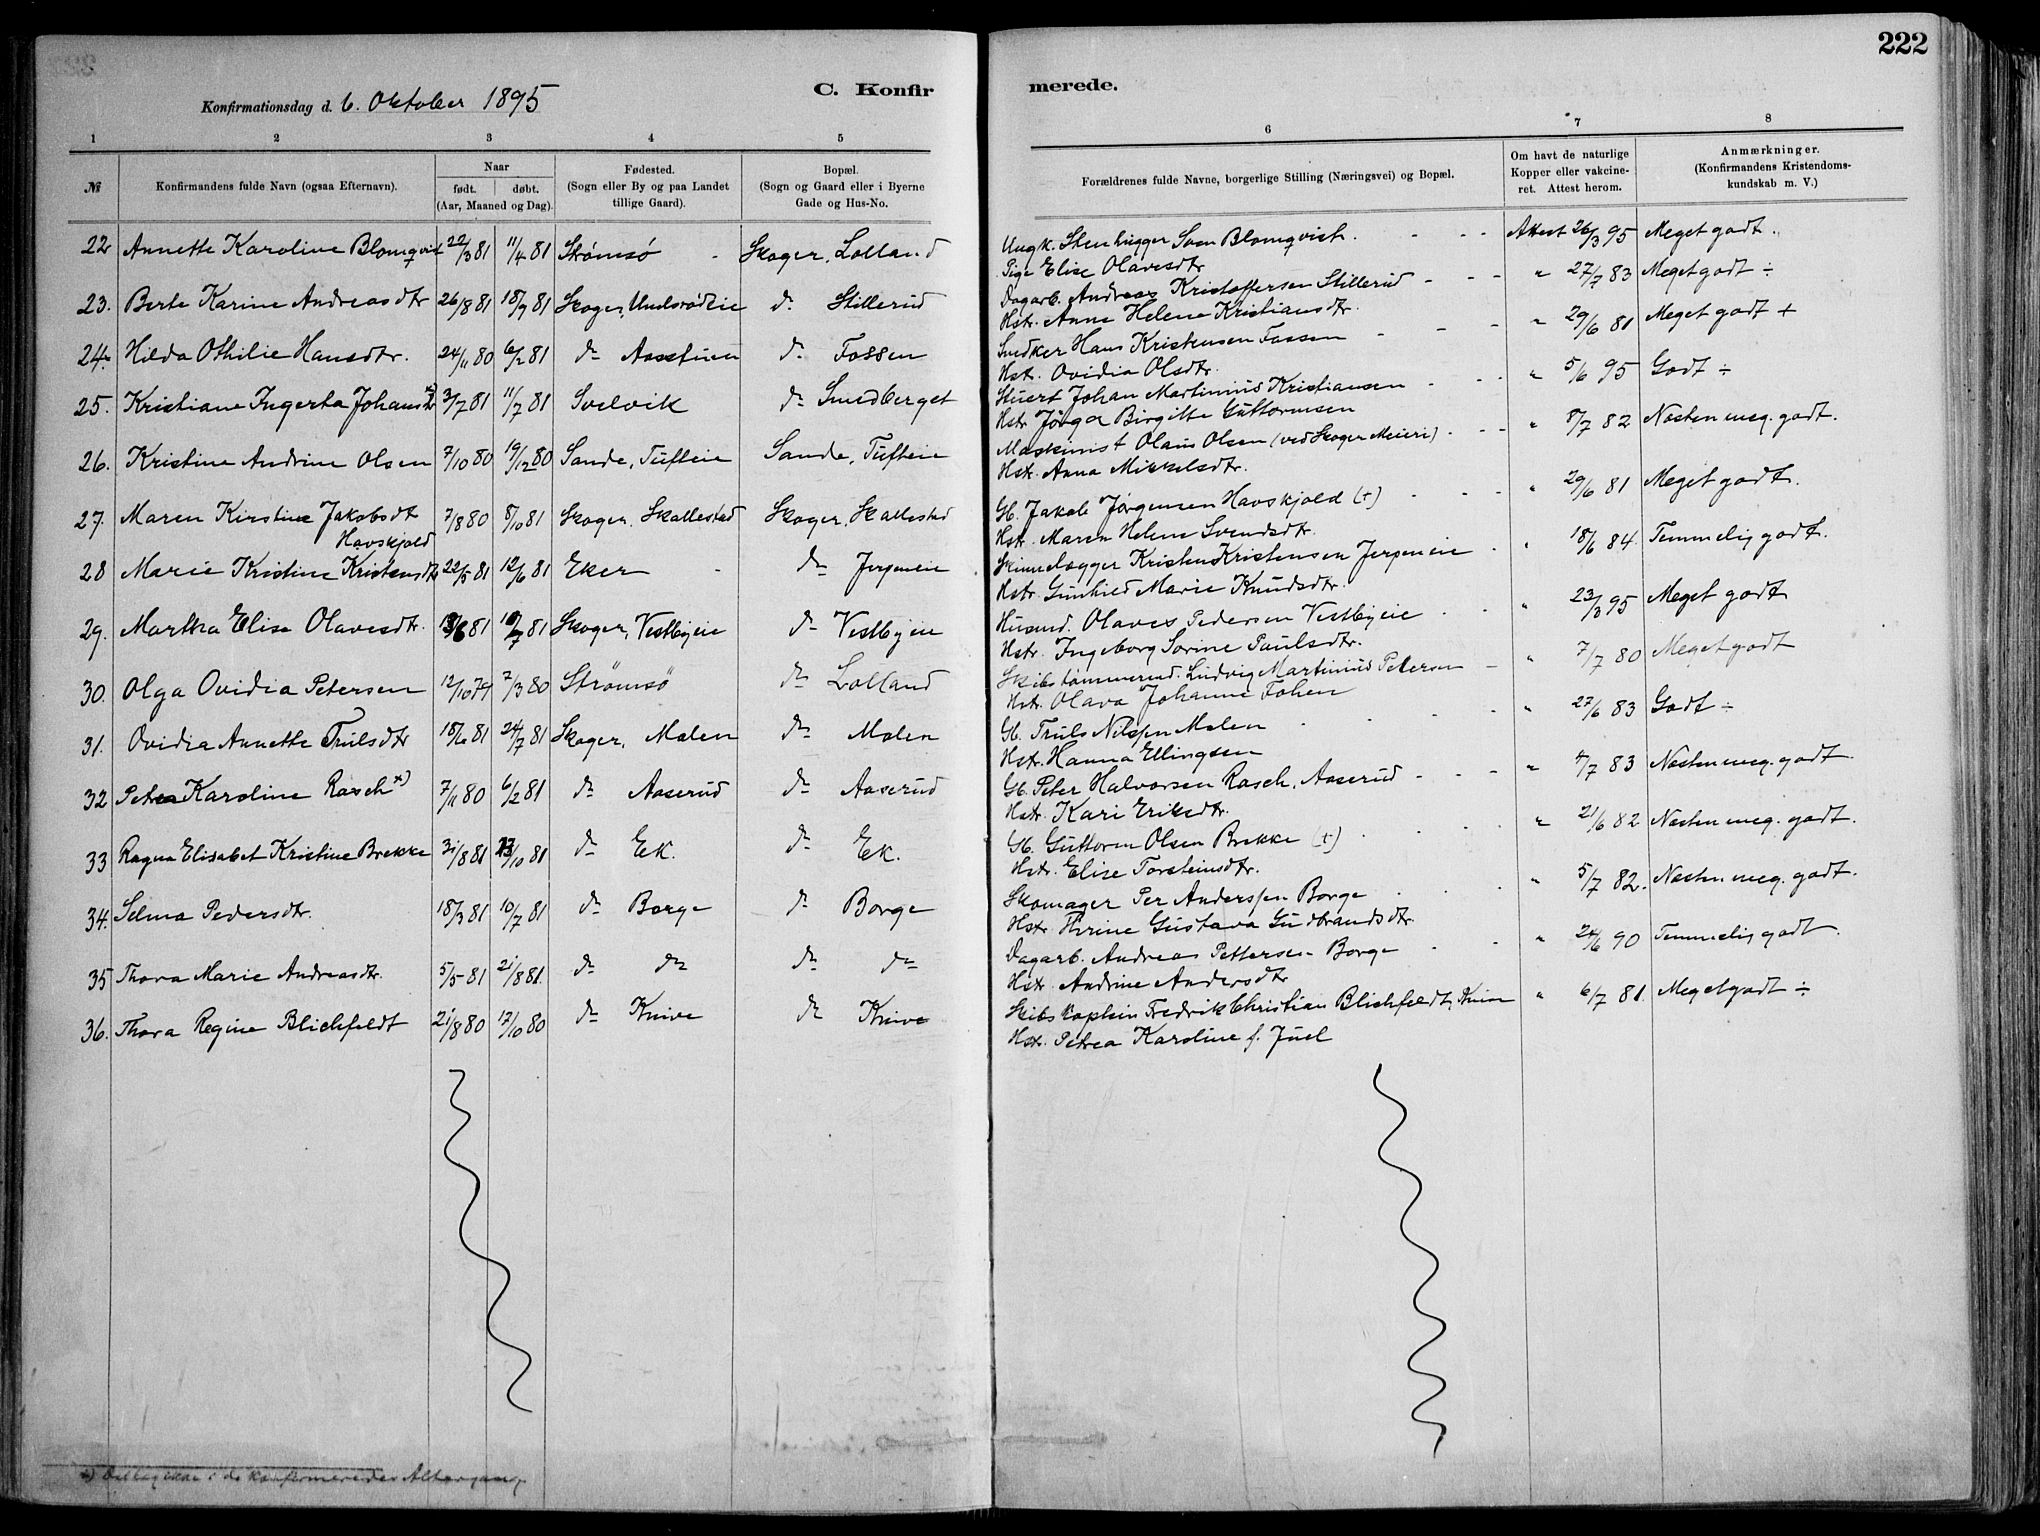 222
C. Konfirmerede.
Konfirmationsdag d. 6. Oktober 1895
1 2 3 4 5 6 7 8
№ Konfirmandens fulde Navn (ogsaa Efternavn).
Naar
født. døbt.
(Aar, Maaned og Dag).
Fødested.
(Sogn eller By og paa Landet
tillige Gaard).
Bopæl.
(Sogn og Gaard eller i Byerne
Gade og Hus-No.
Forældrenes fulde Navne, borgerlige Stilling (Næringsvei) og Bopæl.
Om havt de naturlige
Kopper eller vakcine-
ret. Attest herom.
Anmærkninger.
(Konfirmandens Kristendoms-
kundskab m. V.)
22 Annette Karoline Blomqvist 22/3 81 11/4 81 Strømsö - Skoger, Lolland Ungk. Stenhugger Sven Blomqvist. - - - Attest 26/3 95 Meget godt.
Pige Elise Olavesdtr
23. Berte Karine Andreasdtr 26/8 81 18/9 81 Skoger, Undsrødeie do Stillerud Dagarb. Andreas Kristoffersen Stillerud - - - " 27/7 83 Meget godt ÷
Hstr. Anne Helene Kristiansdtr.
24. Hilda Othilie Hansdtr. 24/11 80 6/2 81 do Aasstuen do Fossen Snedker Hans Kristensen Fossen - - - " 29/6 81 Meget godt +
Hstr. Ovidia Olsdtr.
25. Kristiane Ingerta Johansdtr 3/7 81 11/7 81 Svelvik do Smedberget Stuert Johan Martinius Kristiansen - - - " 5/6 95 Godt ÷
Hstr. Jörga Birgitte Guttormsen
26. Kristine Andrine Olsen 7/10 80 19/12 80 Sande, Tufteie Sande, Tufteie Maskinist Olaus Olsen (ved Skoger Meieri) - - - " 8/7 82 Næsten meg. godt.
Hstr. Anna Mikkelsdtr.
27. Maren Kirstine Jakobsdt 7/8 80 8/10 81 Skoger, Skallestad Skoger, Skallestad Gb. Jakob Jørgensen Havskjold (+) - - - " 29/6 81 Meget godt.
Havskjold
Hstr. Maren Helene Svendsdtr.
28 Marie Kristine Kristensdtr 22/5 81 12/6 81 Eker - do Jerpeneie Skindlægger Kristen Kristensen Jerpeneie - " 18/6 84. Temmelig godt.
Hstr. Gunhild Marie Knudsdtr.
29. Martha Elise Olavesdtr. 13/6 81 10/7 81 Skoger, Vestbyeie do Vestbyeie Husmd. Olaves Pedersen Vestbyeie - - " 23/3 95 Meget godt
Hstr. Ingeborg Sorine Paulsdtr.
30. Olga Ovidia Petersen 12/10 79 7/3 80 Strømsö do Lolland Skibstømmermd. Ludvig Martinius Petersen - " 7/7 80 Meget godt
Hstr. Olava Johanne Fohen
31. Ovidia Annette Trulsdtr 18/6 81 24/7 81 Skoger, Malen do Malen Gb. Truls Nilssen Malen - - - " 27/6 83 Godt ÷
Hstr. Hanna Ellingsen
32 Petra Karoline Rasch x) 7/11 80 6/2 81 do Aaserud do Aaserud Gb. Peter Halvorsen Rasch, Aaserud - - - " 4/7 83 Næsten meg. godt
Hstr. Kari Eriksdtr.
33 Ragna Elisabet Kristine Brekke 31/8 81 23/10 81 do Ek. do Ek. Gb. Guttorm Olsen Brekke (+) - - - " 21/6 82 Næsten meg. godt.
Hstr. Elise Torsteinsdtr.
34. Selma Pedersdtr. 18/3 81 10/7 81 do Borge do Borge Skomager Per Anderssen Borge - - - " 5/7 82. Næsten meg. godt.
Hstr. Thrine Gustava Gudbrandsdtr.
35 Thora Marie Andreasdtr. 5/5 81 21/8 81. do do do do Dagarb. Andreas Pettersen Borge - - " 24/6 90 Temmelig godt.
Hstr. Andrine Andersdtr
36. Thora Regine Blichfeldt 21/8 80 17/10 80 do Knive do Knive Skibskaptein Fredrik Christian Blichfeldt, Knive " 6/7 81. Meget godt ÷
Hstr. Petrea Karoline f. Juel
x) Deltog ikke i de konfirmeredes Altergang.